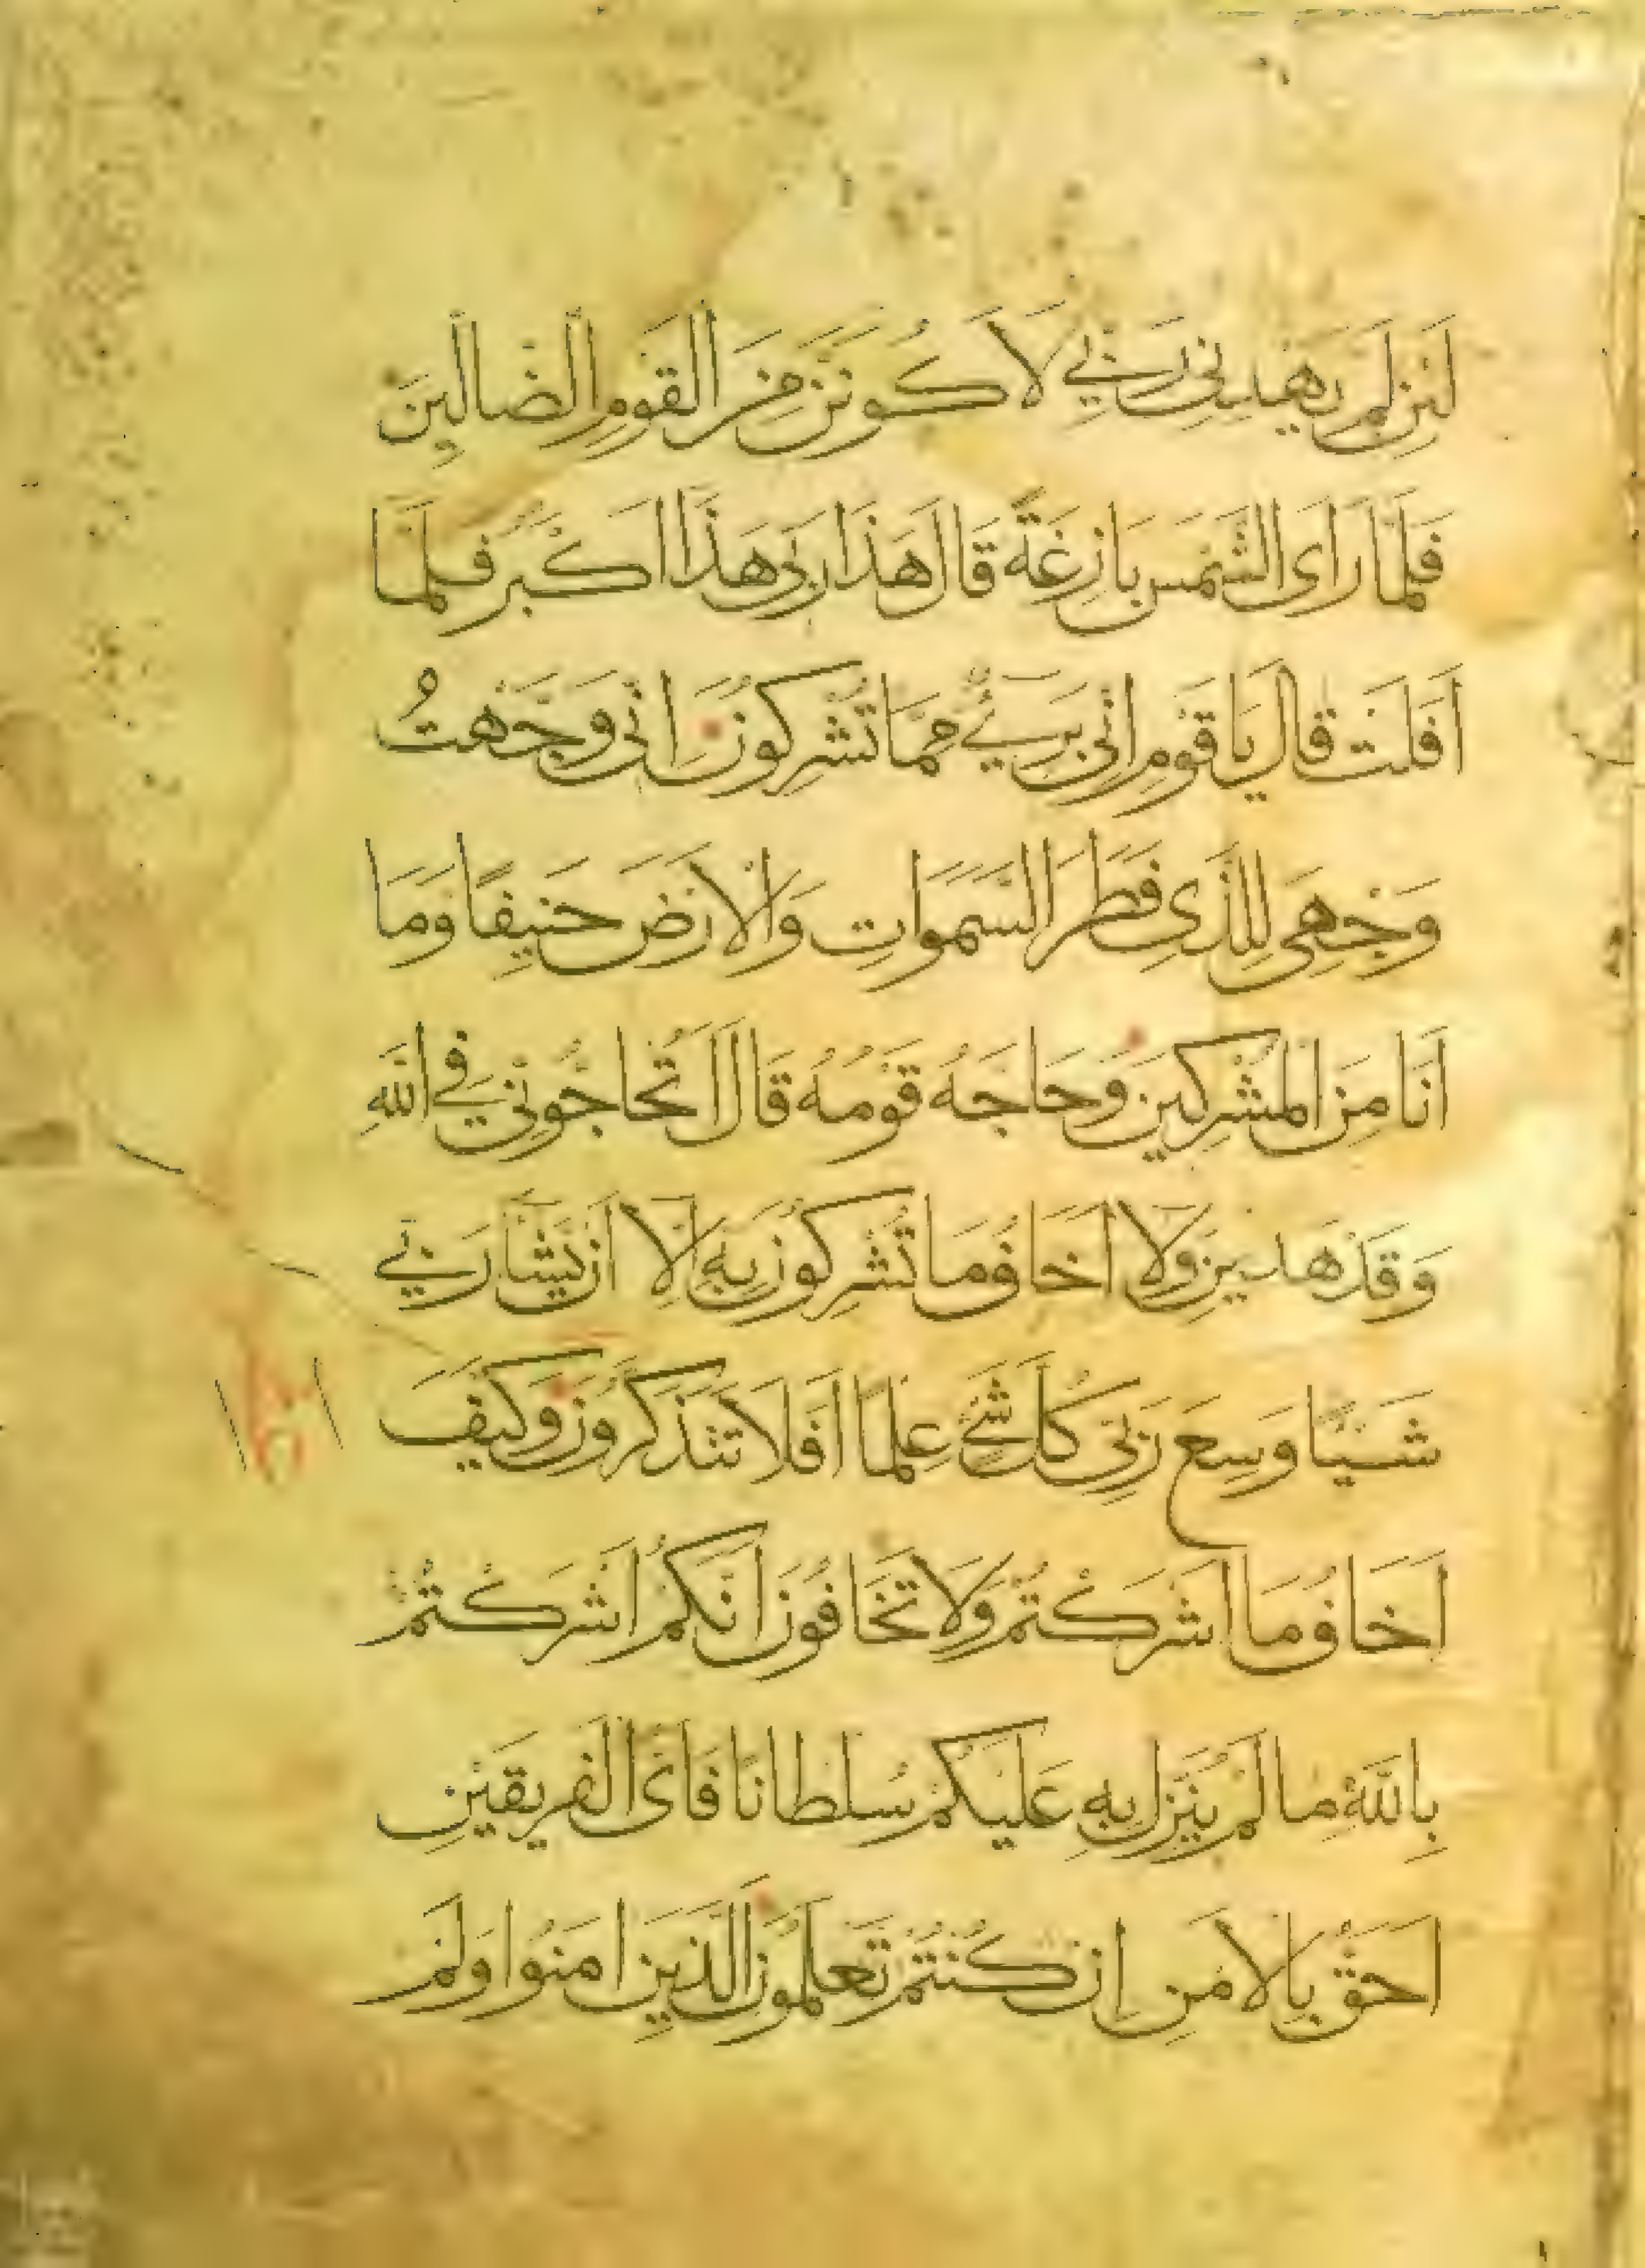 لَئِن لَمْ يَهْدِنِى رَبِّي لَاَكُونَنَّ مِنَ الْقَوْمِ الضَّالِّينَ
فَلَمَّا رَاَى الشَّمْسَ بَازِغَةً قَالَ هَذَا رَبِّى هَذَا اَكْبَرُ فَلَمَّا
اَفَلَتْ قَالَ يَا قَوْمِ اِنِّى بَرِيءٌ مِمَّا تُشْرِكُونَ اِنِّى وَجَّهْتُ
وَجْهِىَ لِلَّذِى فَطَرَ السَّمَوَاتِ وَالْاَرْضَ حَنِيفًا وَمَا
اَنَا مِنَ الْمُشْرِكِينَ وَحَاجَّهُ قَوْمُهُ قَالَ اَتُحَاجُّونِّي فِي اللَّهِ
وَقَدْ هَدَينِ وَلَا اَخَافُ مَا تُشْرِكُونَ بِهِ اِلَّا اَنْ يَشَآ رَبِّي
شَيْئًا وَسِعَ رَبِّى كُلَّ شَيْءٍ عِلْمًا اَفَلَا تَتَذَكَّرُونَ وَكَيْفَ
اَخَافُ مَا اَشْرَكْتُمْ وَلَا تَخَافُونَ اَنَّكُمْ اَشْرَكْتُمْ
بِاللَّهِ مَا لَمْ يُنَزِّلْ بِهِ عَلَيْكُمْ سُلْطَانًا فَاَىُّ الْفَرِيقَيْنِ
اَحَقُّ بِالْاَمْنِ اِنْ كُنْتُمْ تَعْلَمُونَ الَّذِينَ اَمَنُوا وَلَمْ